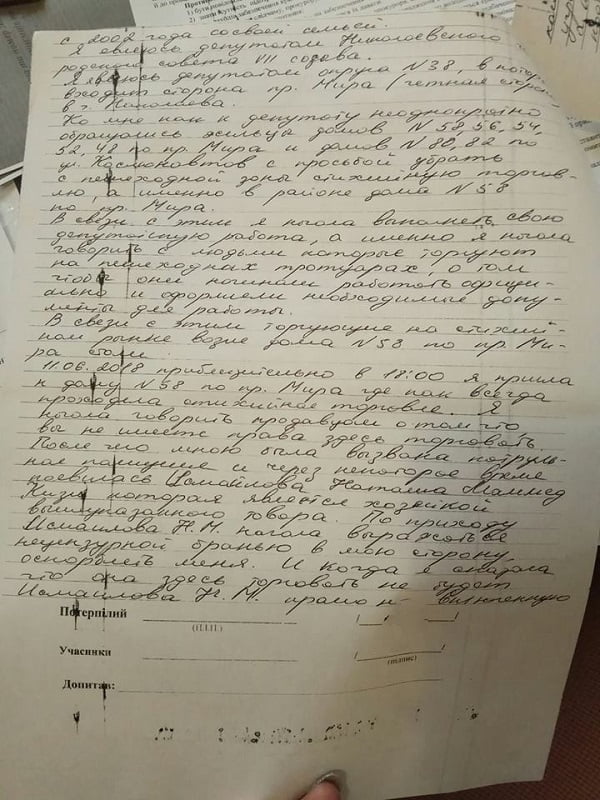 с 2002 года со своей семьей.
Я являюсь депутатом Николаевского
родского совета VII созыва.
Я являюсь депутатом округа N38, в котор
входит сторона пр. Мира (четная сторон
в г. Николаева.
Ко мне как к депутату неоднократно
обращались жильцы домов N 58, 56, 54,
52, 48 по пр. Мира и домов N 80, 82 по
ул. Космонавтов с просьбой убрать
с пешеходной зоны стихийную торгов-
лю, а именно в районе дома N 58
по пр. Мира.
В связи с этим я начала выполнять свою
депутатскую работа, а именно я начала
говорить с людьми которые торгуют
на пешеходных тротуарах, о том
чтобы они начинали работать офици-
ально и оформели необходимые доку-
менты для работы.
В связи с этим торгующие на стихий-
ном рынке возле дома N 58 по пр. Ми-
ра стали
11.06.2018 приблизительно в 18:00 я пришла
к дому N 58 по пр. Мира где как всегда
проходила стихийная торговля. Я
начала говорить продавцам о том что
вы не имеете права здесь торговать.
После чего мною была вызвана патруль-
ная полиция и через некоторое время
появилась Исмаилова Наташа Маммед
Кизи которая является хозяйкой
вышеуказанного товара. По приходу
Исмаилова Н.М. начала выражаться
нецензурной бранью в мою сторону
оскорблять меня. И когда я сказала
что она здесь торговать не будет
Исмаилова Н.М. прямо
Потерпілий
(П.І.П.)
Учасники
(підпис)
Допитав: